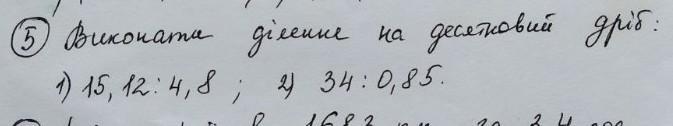 5 Виконати ділення на десятковий дріб:
1) 15,12 : 4,8 ; 2) 34 : 0,85.